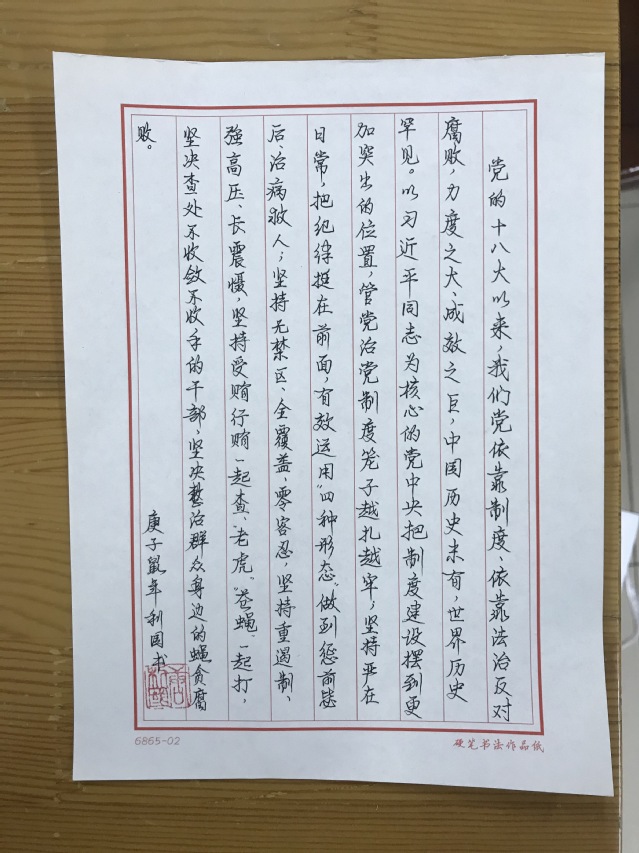 党的十八大以来，我们党依靠制度、依靠法治反对
腐败，力度之大、成效之巨，中国历史未有，世界历史
罕见。以习近平同志为核心的党中央把制度建设摆到更
加突出的位置，管党治党制度笼子越扎越牢；坚持严在
日常，把纪律挺在前面，有效运用“四种形态”做到惩前毖
后、治病救人；坚持无禁区、全覆盖、零容忍，坚持重遏制、
强高压、长震慑，坚持受贿行贿一起查、“老虎”“苍蝇”一起打，
坚决查处不收敛不收手的干部，坚决整治群众身边的蝇贪腐
败。
庚子鼠年利国书
6865-02
硬笔书法作品纸